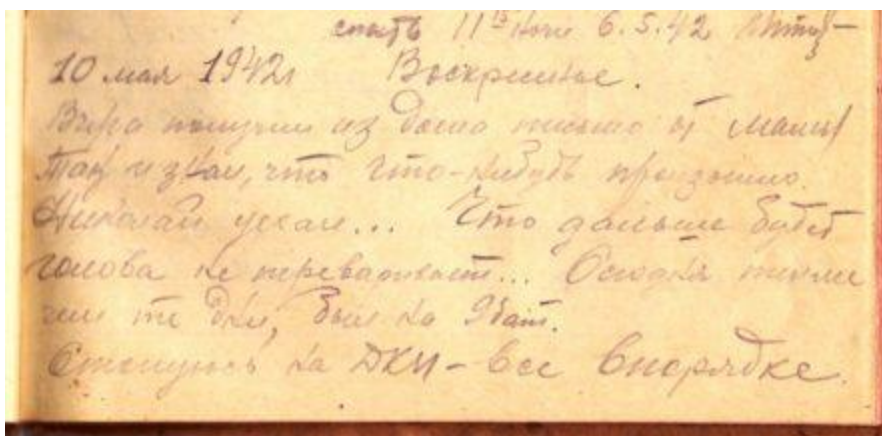 спать 11 ночи 6.5.42
10 мая 1942г Воскресенье.
Вчера получил из дома письмо от мамы
Так и знал, что что-нибудь произошло.
Николай уехал... Что дальше будет
голова не переваривает... Сегодня
чем те дни, был на 9бат.
на ДКП - все впорядке.